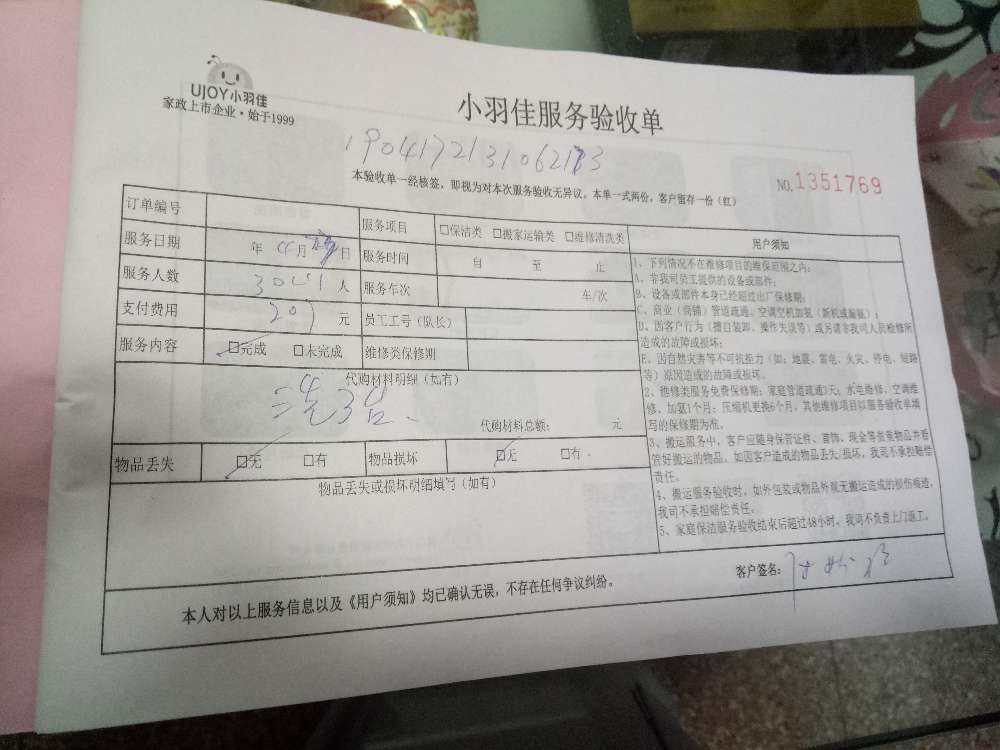 UJOY小羽佳
家政上市企业·始于1999
小羽佳服务验收单
NO.1351769
本验收单一经核签，即视为对本次服务验收无异议。本单一式两份，客户留存一份（红）
订单编号
服务项目 □保洁类 □搬家运输类 □维修清洗类
服务日期 年 4月 日
服务时间 自 至 止
服务人数 人
服务车次 车/次
支付费用 207 元
员工工号（队长）
服务内容 □完成 □未完成
维修类保修期
代购材料明细（如有）
代购材料总额： 元
物品丢失 □无 □有
物品损坏 □无 □有
物品丢失或损坏明细填写（如有）
用户须知
1、下列情况不在维修项目的维保范围之内：
A、非我司员工提供的设备或部件；
B、设备或部件本身已经超过出厂保修期；
C、商业（商铺）管道疏通、空调空机加氨（新机或漏氨）；
D、因客户行为（擅自装卸、操作失误等）或另请非我司人员检修所
造成的故障或损坏；
E、因自然灾害等不可抗拒力（如：地震、雷电、火灾、停电、短路
等）原因造成的故障或损坏。
2、维修类服务免费保修期：家庭管道疏通3天；水电维修、空调维
修、加氨1个月；压缩机更换6个月，其他维修项目以服务验收单填
写的保修期为准。
3、搬运服务中，客户应随身保管证件、首饰、现金等贵重物品并看
管好搬运的物品。如因客户造成的物品丢失/损坏，我司不承担赔偿
责任。
4、搬运服务验收时，如外包装或物品外观无搬运造成的损伤痕迹，
我司不承担赔偿责任。
5、家庭保洁服务验收结束后超过48小时，我司不负责上门返工。
客户签名：
本人对以上服务信息以及《用户须知》均已确认无误，不存在任何争议纠纷。